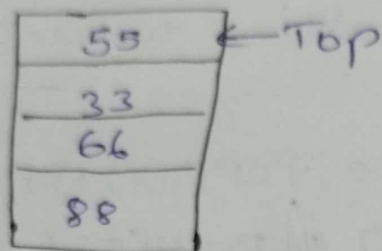 55 ← Top
33
66
88